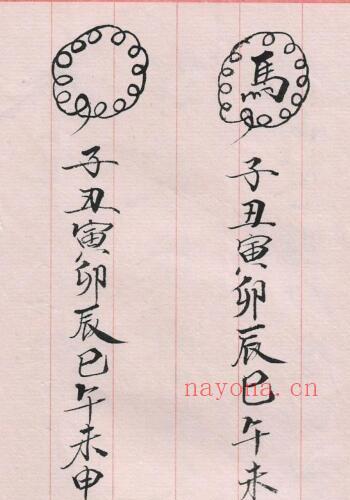 馬
子丑寅卯辰巳午未
子丑寅卯辰巳午未申
nayona.cn